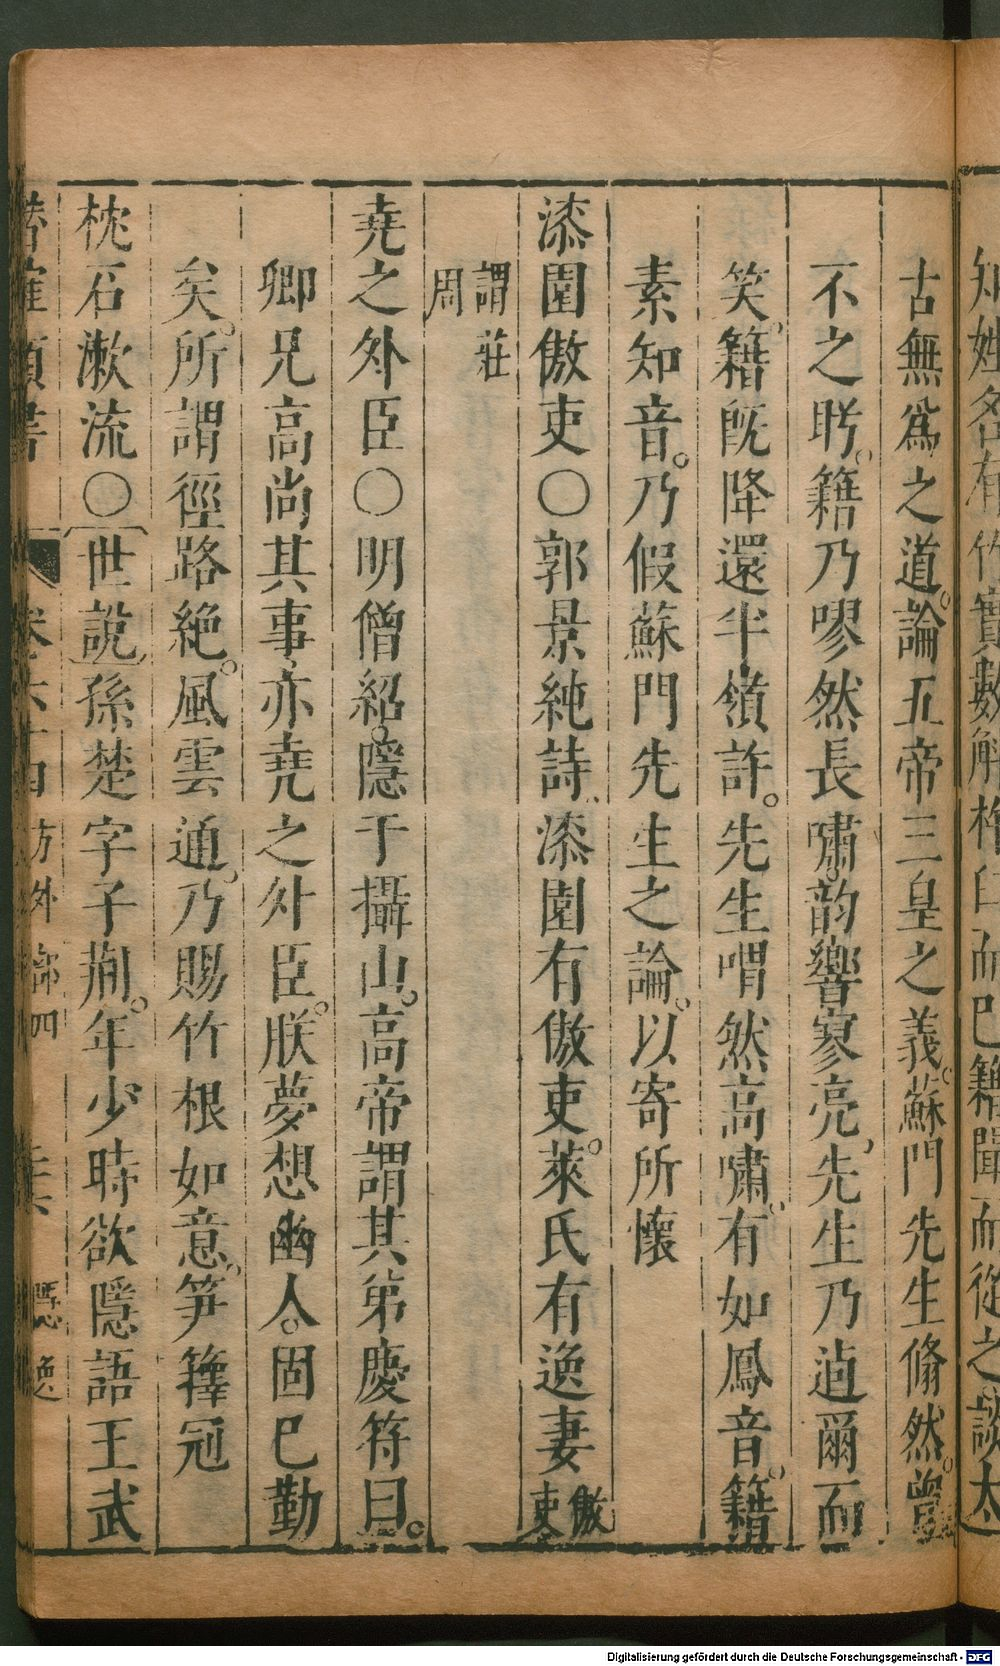 知姓名有竹實數斛杵臼而已籍聞而從之談太
古無爲之道。論五帝三皇之義。蘇門先生翛然。曾
不之眄。籍乃嘐然長嘯。韵響寥亮。先生乃逌爾而
笑。籍旣降還半嶺許。先生喟然高嘯。有如鳳音。籍
素知音。乃假蘇門先生之論。以寄所懷
漆園傲吏〇郭景純詩。漆園有傲吏。萊氏有逸妻傲吏
謂莊周
尭之外臣〇明僧紹。隱于攝山。高帝謂其弟慶符曰。
卿兄高尚其事。亦尭之外臣。朕夢想幽人。固已勤
矣。所謂徑路絶。風雲通。乃賜竹根如意。笋籜冠
枕石漱流〇世說孫楚字子荆。年少時欲隱語王武
卷六十四 方外部四 隱逸
Digitalisierung gefördert durch die Deutsche Forschungsgemeinschaft - DFG